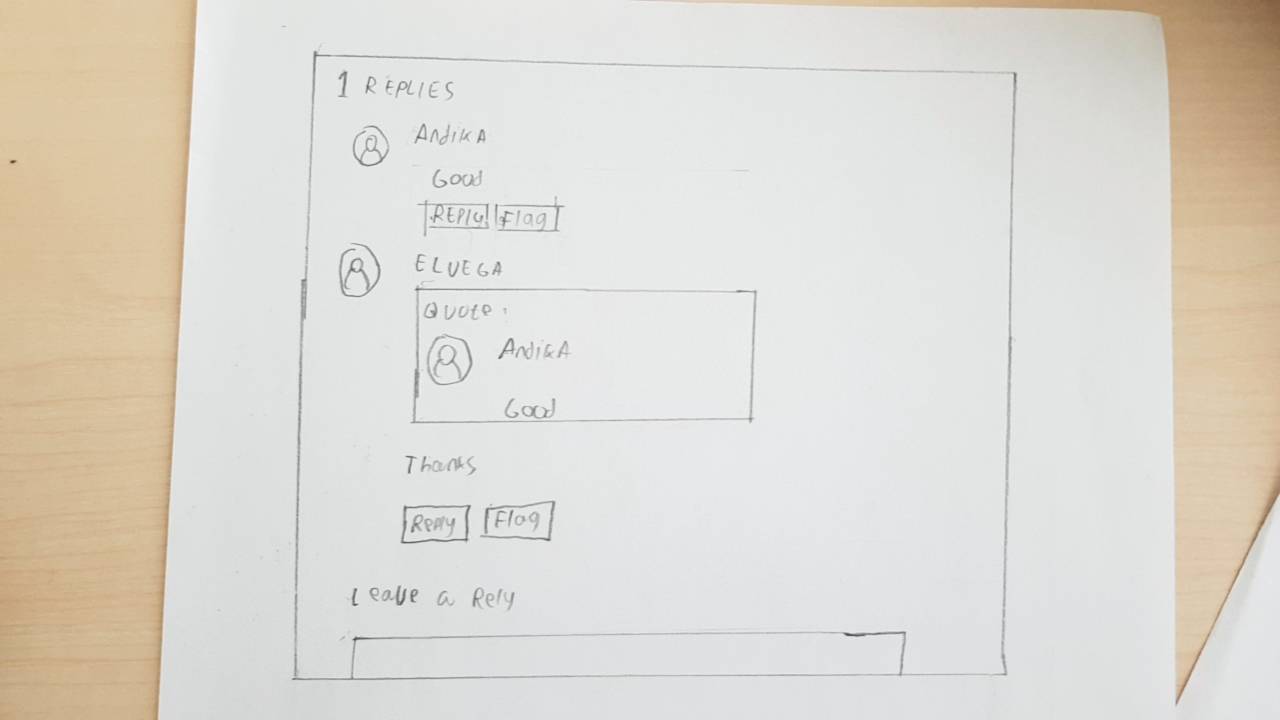 1 REPLIES
ANdikA
Good
REPly Flag
ELVEGA
Quote:
ANdikA
Good
Thanks
Reply Flag
Leave a Rely